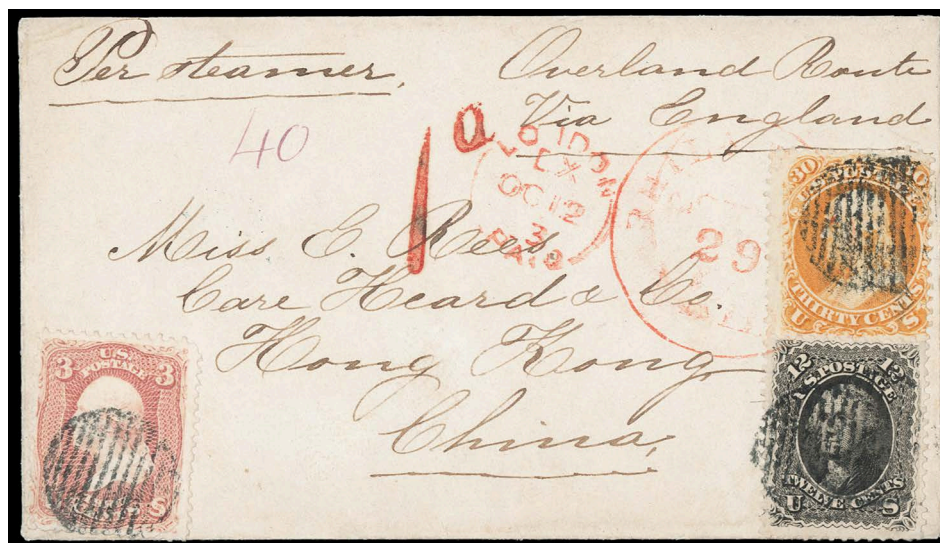 Per steamer,
Overland Route
Via England
40
1d
LONDON
EX
OC 12
3
PAID
29
Miss E. Rees
Care Heard & Co.
Hong Kong
China,
30
U.S. POSTAGE
THIRTY CENTS
U S
3 3
U.S.
POSTAGE
CENTS
S
12 12
U.S. POSTAGE
TWELVE CENTS
U S